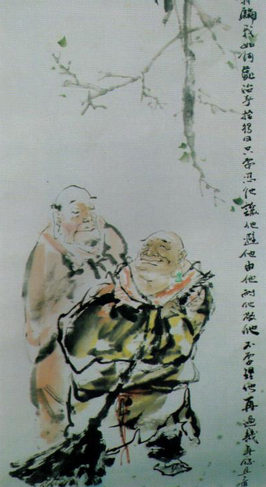 騙我如何處治乎拾得曰只要忍他讓他避他由他耐他敬他不要理他再過幾年你且看